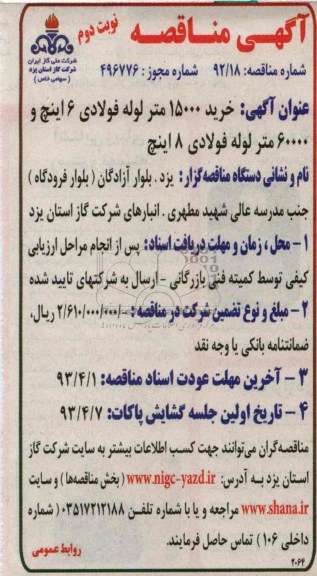 آگهی مناقصه نوبت دوم
شرکت ملی گاز ایران
شرکت گاز استان یزد
(سهامی خاص)
شماره مناقصه: ۹۲/۱۸ شماره مجوز: ۴۹۶۷۷۶
عنوان آگهی: خرید ۱۵۰۰۰ متر لوله فولادی ۶ اینچ و
۶۰۰۰۰ متر لوله فولادی ۸ اینچ
نام و نشانی دستگاه مناقصه‌گزار: یزد . بلوار آزادگان (بلوار فرودگاه)
جنب مدرسه عالی شهید مطهری . انبارهای شرکت گاز استان یزد
۱- محل ، زمان و مهلت دریافت اسناد: پس از انجام مراحل ارزیابی
کیفی توسط کمیته فنی بازرگانی - ارسال به شرکتهای تایید شده
۲- مبلغ و نوع تضمین شرکت در مناقصه: -/۲/۶۱۰/۰۰۰/۰۰۰ ریال،
ضمانتنامه بانکی یا وجه نقد
۳- آخرین مهلت عودت اسناد مناقصه: ۹۳/۴/۱
۴- تاریخ اولین جلسه گشایش پاکات: ۹۳/۴/۷
مناقصه‌گران می‌توانند جهت کسب اطلاعات بیشتر به سایت شرکت گاز
استان یزد به آدرس: www.nigc-yazd.ir (بخش مناقصه‌ها) و سایت
www.shana.ir مراجعه و یا با شماره تلفن ۰۳۵۱۷۲۱۲۱۸۸ (شماره
داخلی ۱۰۶) تماس حاصل فرمایند.
روابط عمومی
۲۰۶۴